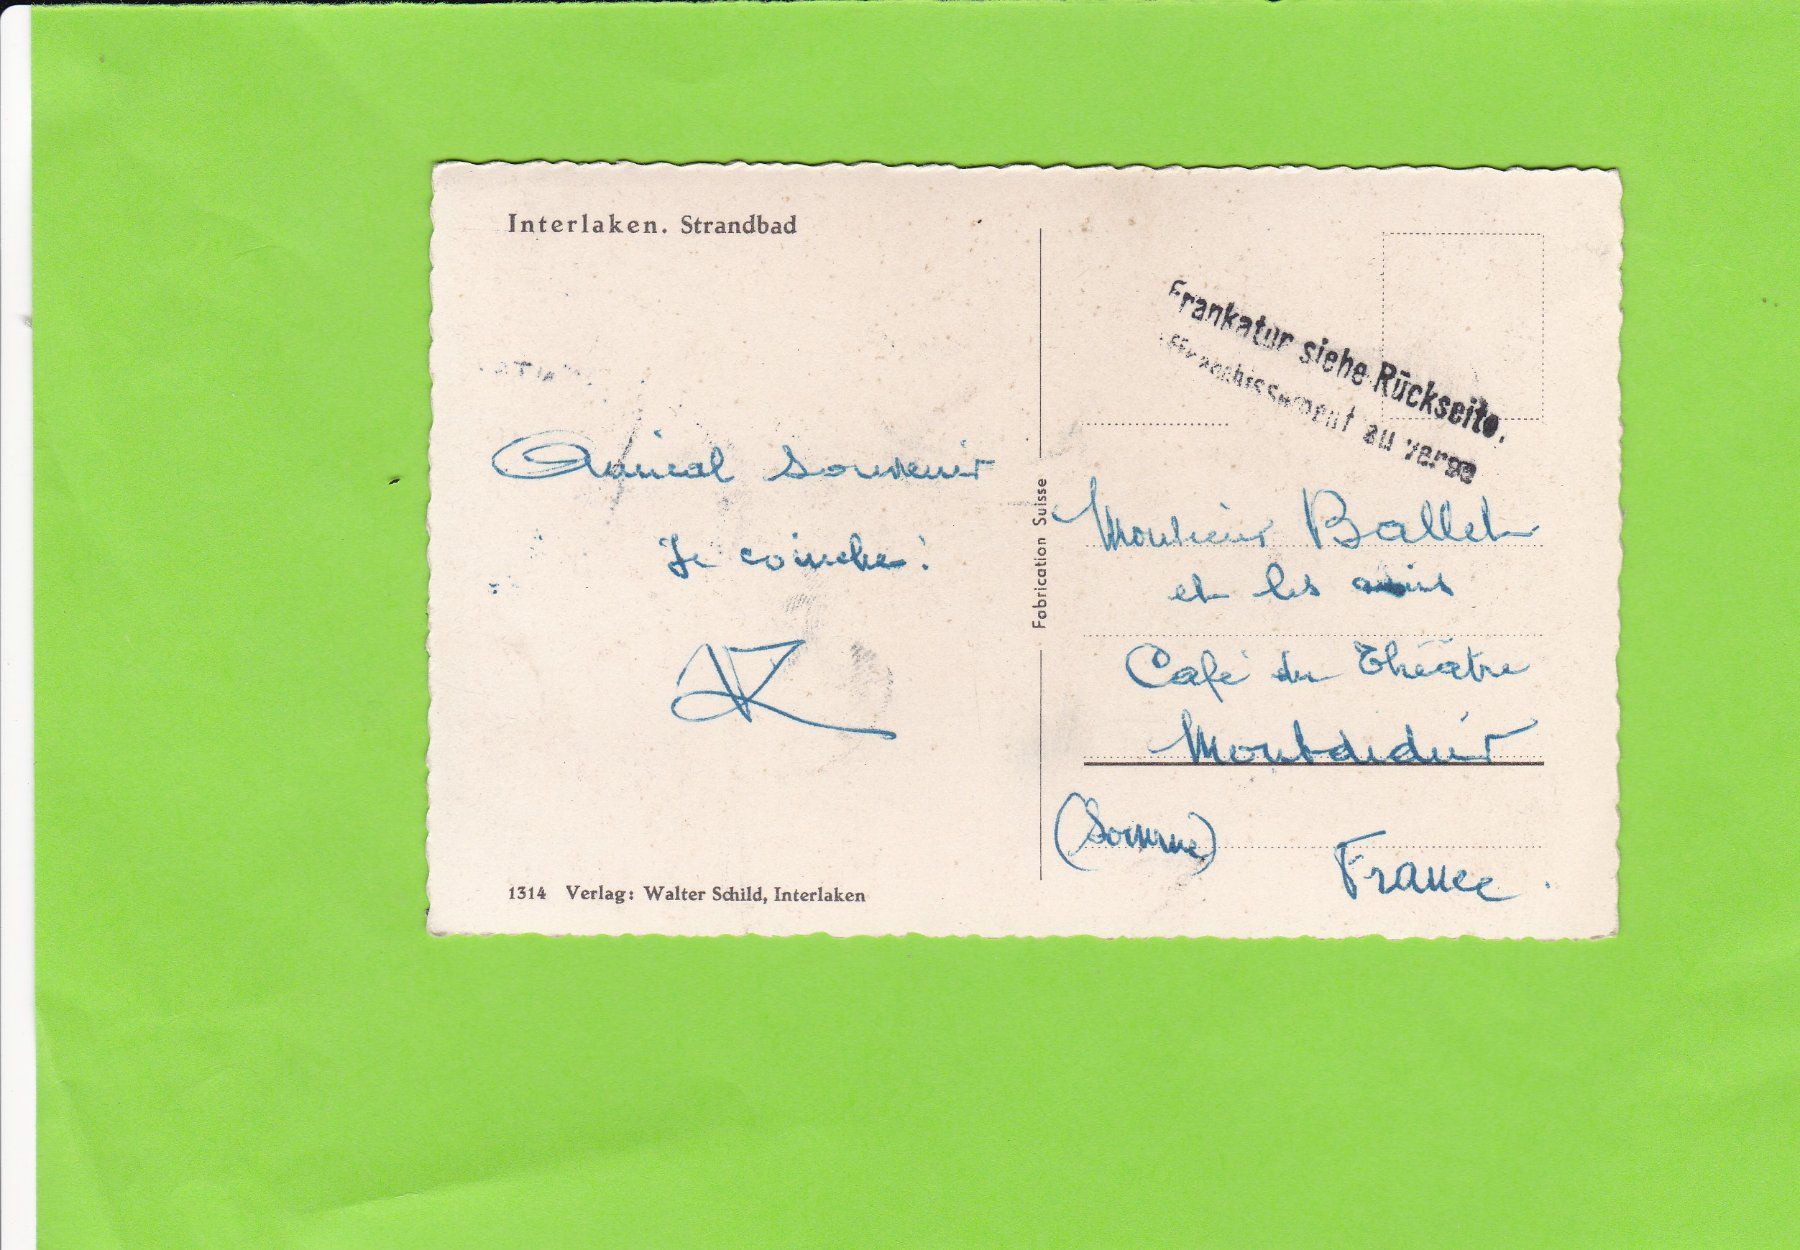 Interlaken. Strandbad
Amical souvenir
Je coinche!
1314 Verlag: Walter Schild, Interlaken
Fabrication Suisse
Frankatur siehe Rückseite.
Affranchissement au verso
Monsieur Ballet
et les amis
Café du Théâtre
Montdidier
(Somme)
France.